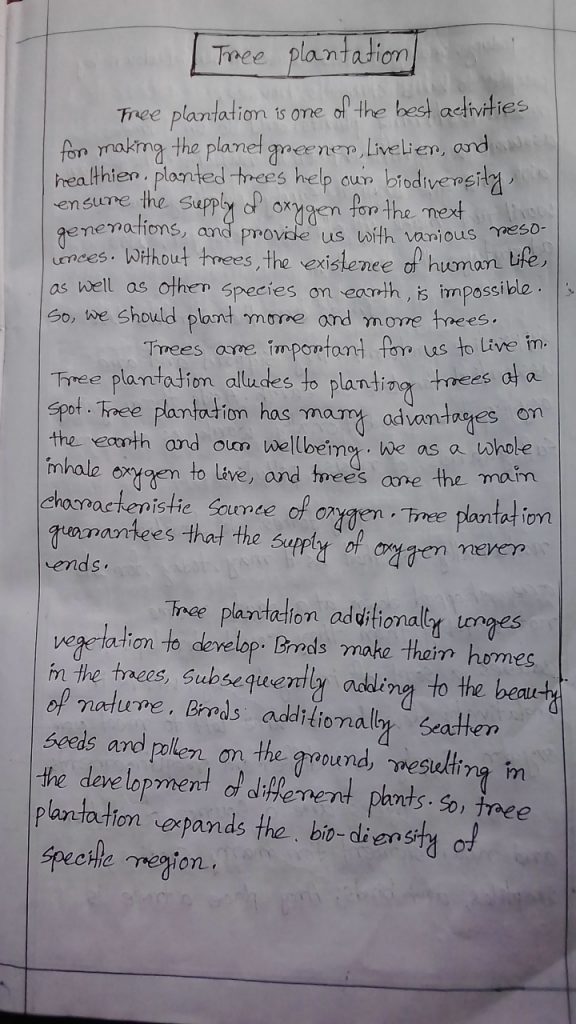 Tree plantation
Tree plantation is one of the best activities
for making the planet greener, Livelier, and
healthier. planted trees help our biodiversity,
ensure the supply of oxygen for the next
generations, and provide us with various reso-
urces. Without trees, the existence of human life,
as well as other species on earth, is impossible.
So, we should plant more and more trees.
Trees are important for us to live in.
Tree plantation alludes to planting trees at a
spot. Tree plantation has many advantages on
the earth and our wellbeing. We as a whole
inhale oxygen to live, and trees are the main
characteristic source of oxygen. Tree plantation
guarantees that the supply of oxygen never
ends.
Tree plantation additionally urges
vegetation to develop. Birds make their homes
in the traees, subsequently adding to the beauty
of nature. Birds additionally scatter
seeds and pollen on the ground, resulting in
the development of different plants. So, tree
plantation expands the. bio-diensity of
specific region.